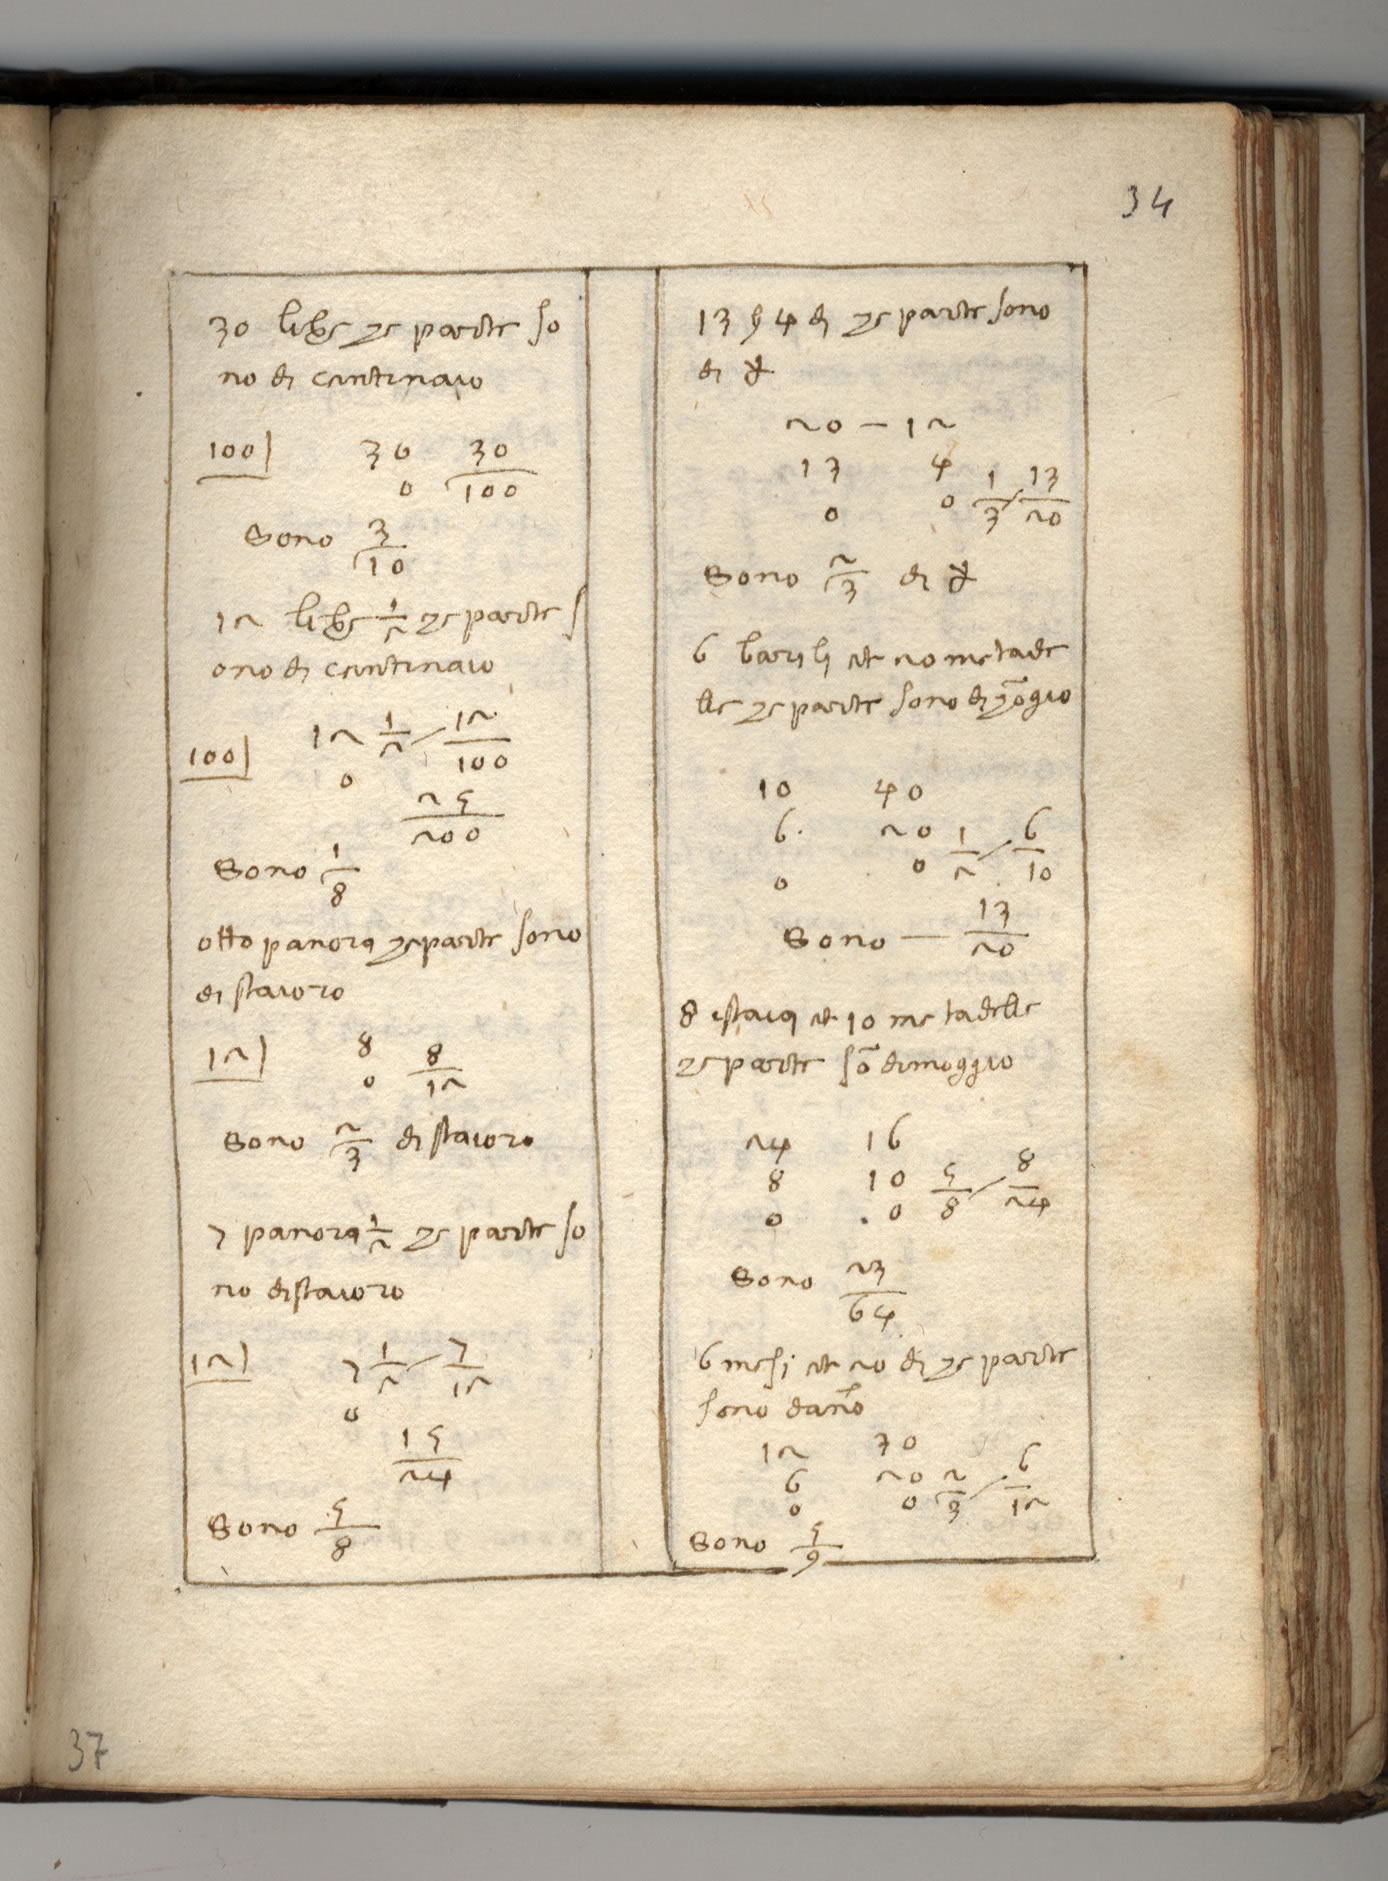 34
30 libre che parte so
no di centinaio
100 30 30/100
0
Sono 3/10
12 libre 1/2 che parte s
ono di centinaio
100 12 1/2 12/100
0
25/200
Sono 1/8
otto panora che parte sono
di staioro
12 8 8/12
0
Sono 2/3 di staioro
7 panora 1/2 che parte so
no distaioro
12 7 1/2 7/12
0
15/24
Sono 5/8
13 ß 4 di che parte sono
di
20 — 12
13 4
0 0 1/3 13/20
Sono 2/3 di
6 barili et 20 metade
lle che parte sono di cogio
10 40
6 20 1/2 6/10
0 0
Sono — 13/20
8 istaia et 10 metadelle
che parte sō dimoggio
24 16
8 10 5/8 8/24
0 0
Sono 23/64
6 mesi et 20 di che parte
sono danno
12 30
6 20 2/3 6/12
0 0
Sono 5/9
37